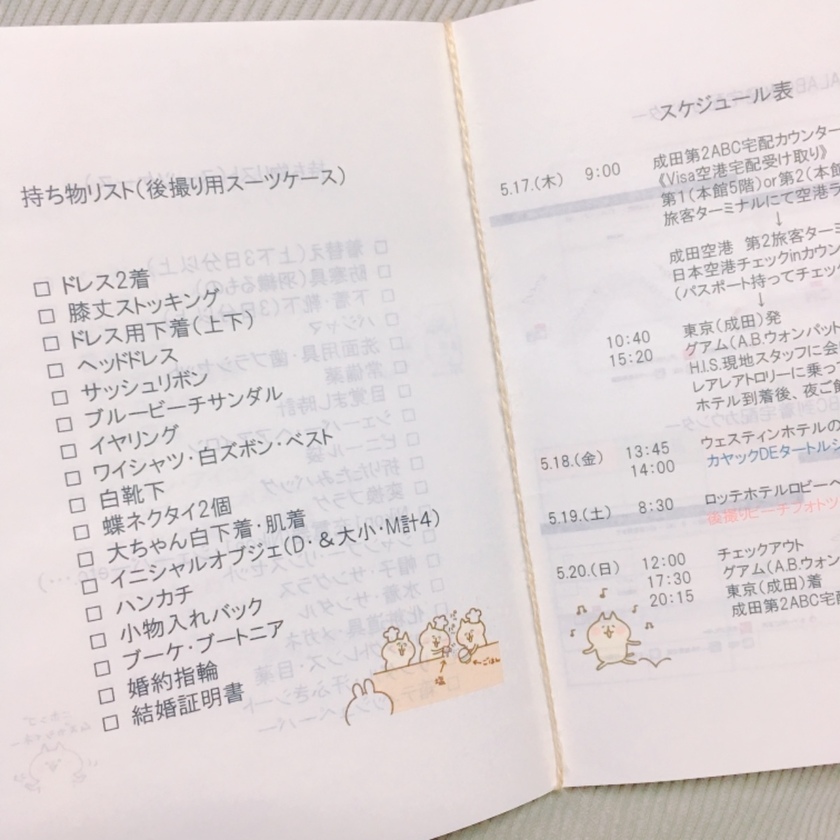 持ち物リスト(後撮り用スーツケース)
□ ドレス2着
□ 膝丈ストッキング
□ ドレス用下着(上下)
□ ヘッドドレス
□ サッシュリボン
□ ブルービーチサンダル
□ イヤリング
□ ワイシャツ・白ズボン・ベスト
□ 白靴下
□ 蝶ネクタイ2個
□ 大ちゃん白下着・肌着
□ イニシャルオブジェ(D・&大小・M計4)
□ ハンカチ
□ 小物入れバック
□ ブーケ・ブートニア
□ 婚約指輪
□ 結婚証明書
スケジュール表
5.17.(木) 9:00 成田第2ABC宅配カウンター
《Visa空港宅配受け取り》
第1(本館5階)or第2(本館
旅客ターミナルにて空港
↓
成田空港 第2旅客ターミ
日本空港チェックinカウン
(パスポート持ってチェック
↓
10:40 東京(成田)発
15:20 グアム(A.B.ウォンパット
H.I.S.現地スタッフに会
レアレアトロリーに乗っ
ホテル到着後、夜ご
5.18.(金) 13:45 ウェスティンホテルの
14:00 カヤックDEタートル
5.19.(土) 8:30 ロッテホテルロビーへ
後撮りビーチフォトツ
5.20.(日) 12:00 チェックアウト
17:30 グアム(A.B.ウォン
20:15 東京(成田)着
成田第2ABC宅配